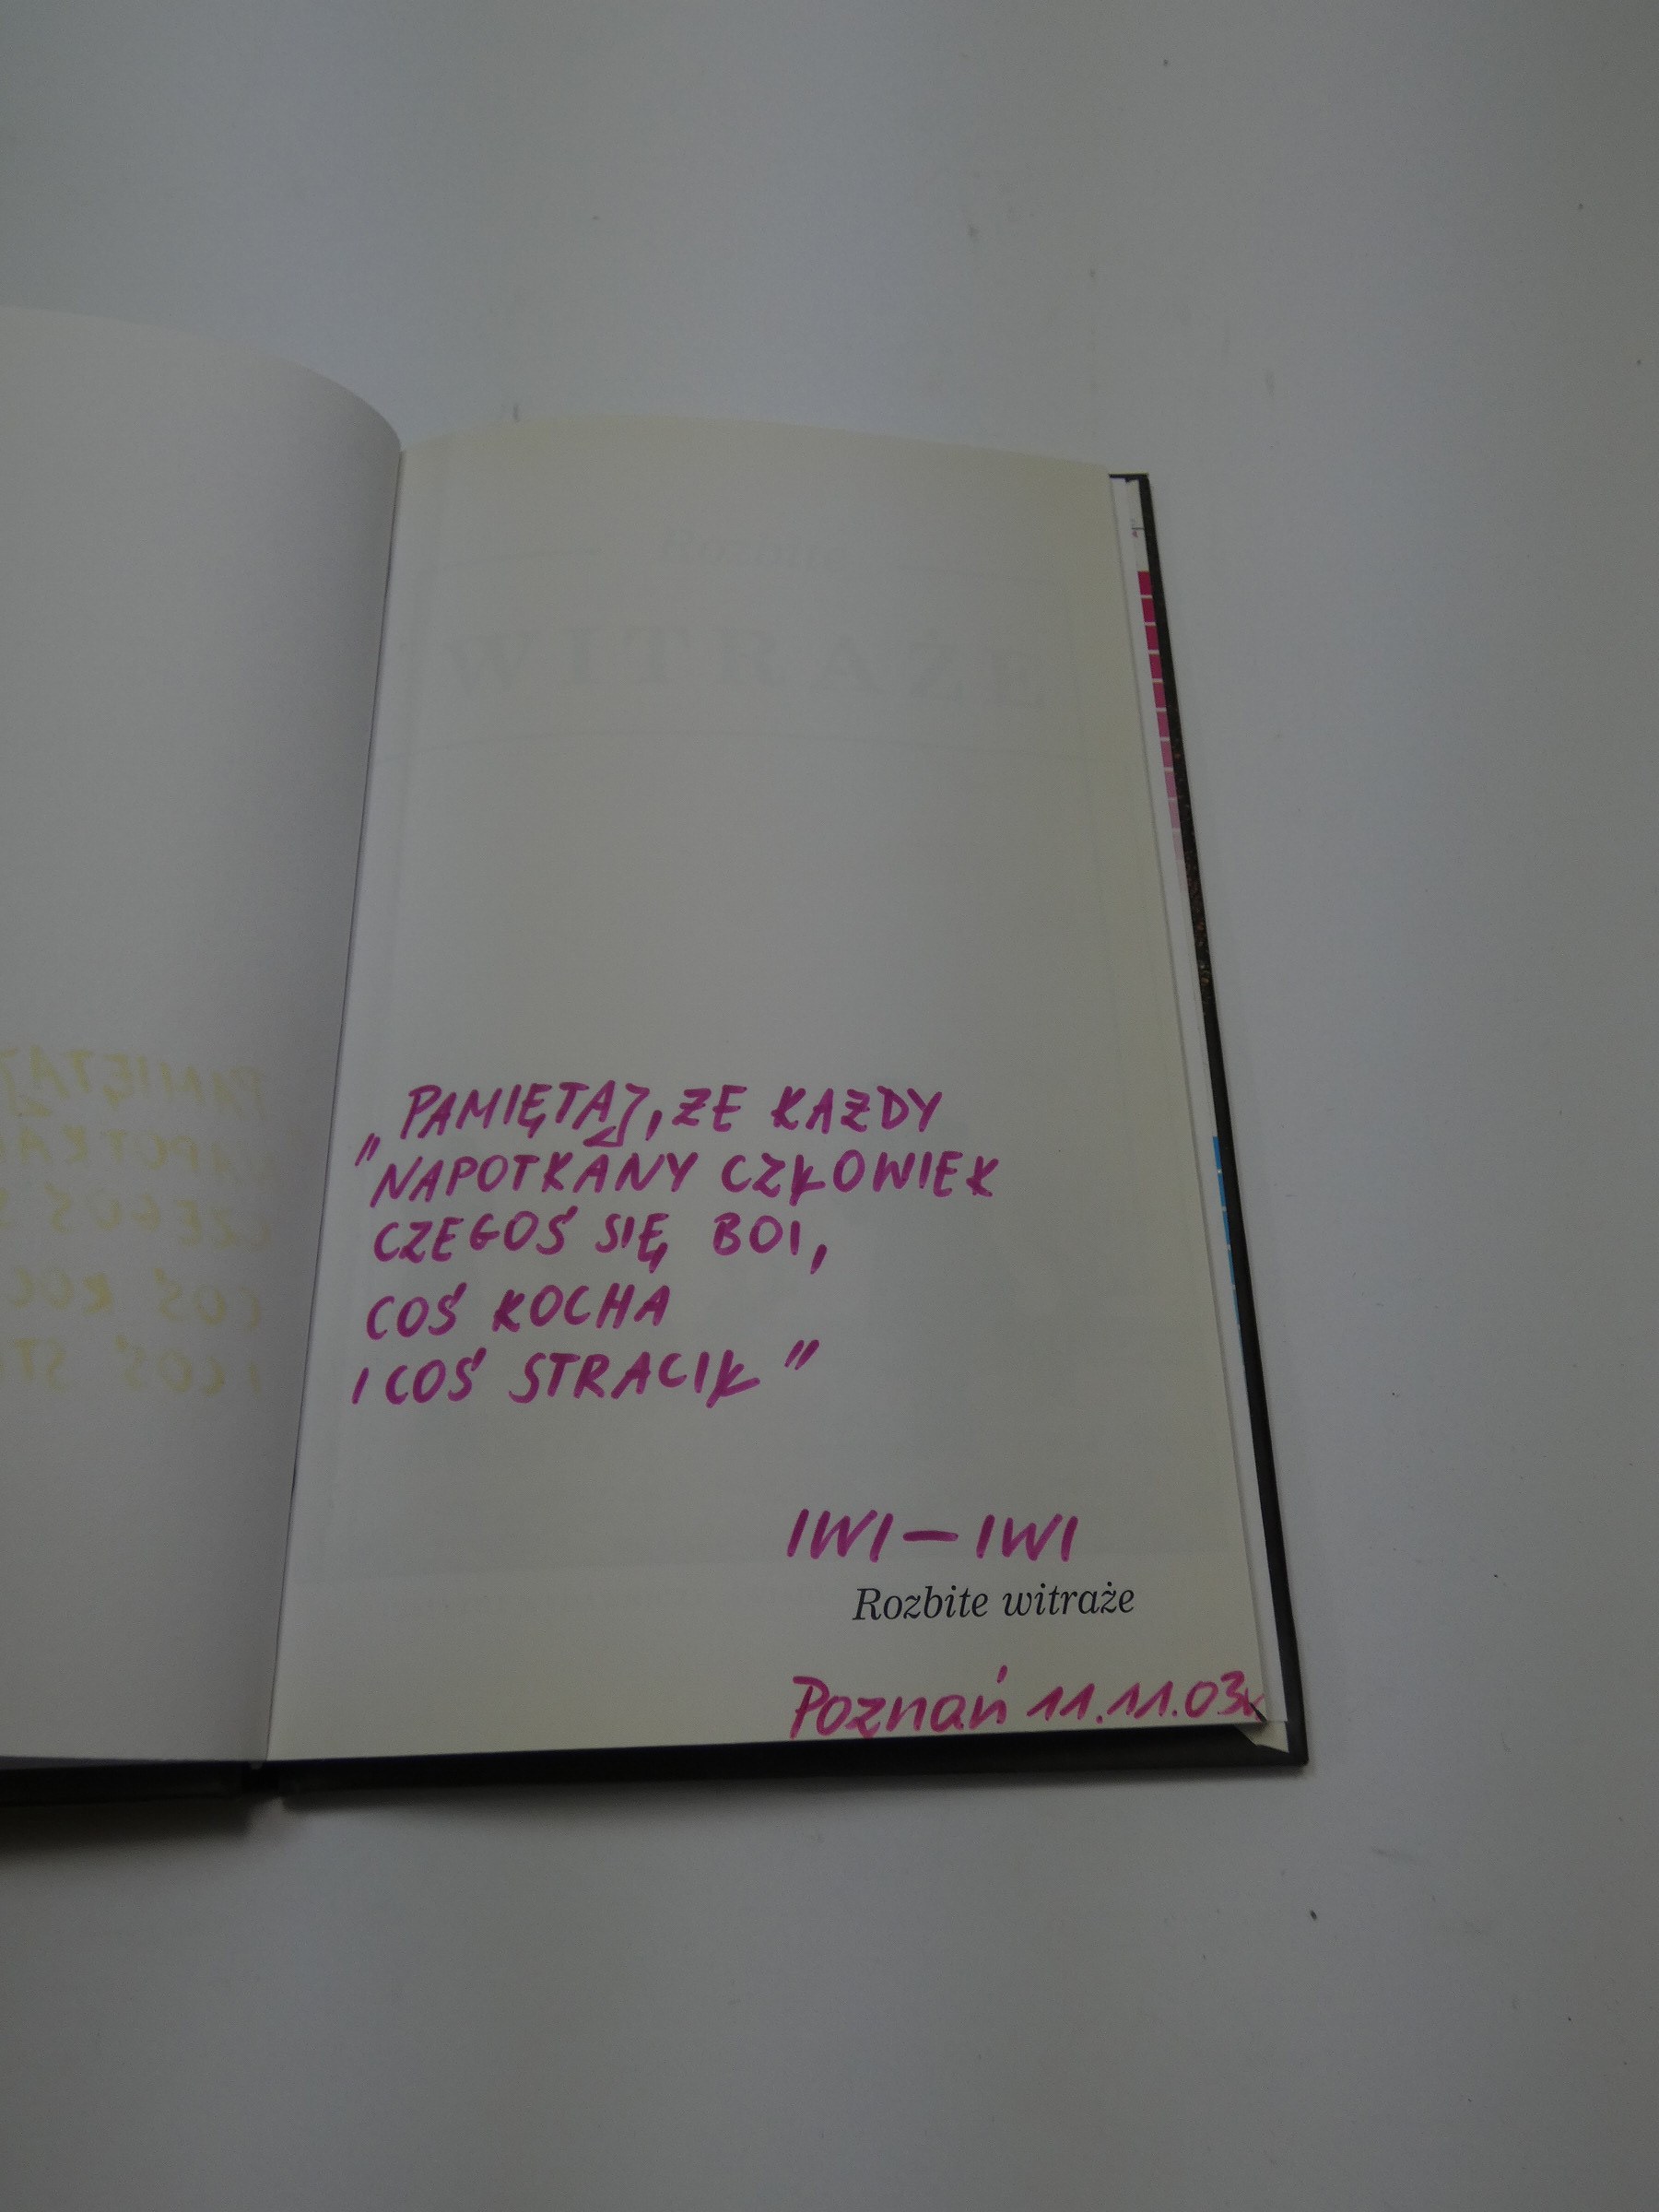 WITRAŻE
„PAMIĘTAJ, ŻE KAŻDY
NAPOTKANY CZŁOWIEK
CZEGOŚ SIĘ BOI,
COŚ KOCHA
I COŚ STRACIŁ"
IWI – IWI
Rozbite witraże
Poznań 11.11.03r